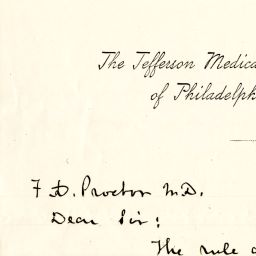 The Jefferson Medica
of Philadelph
F. D. Proctor M.D.
Dear Sir:
The rule